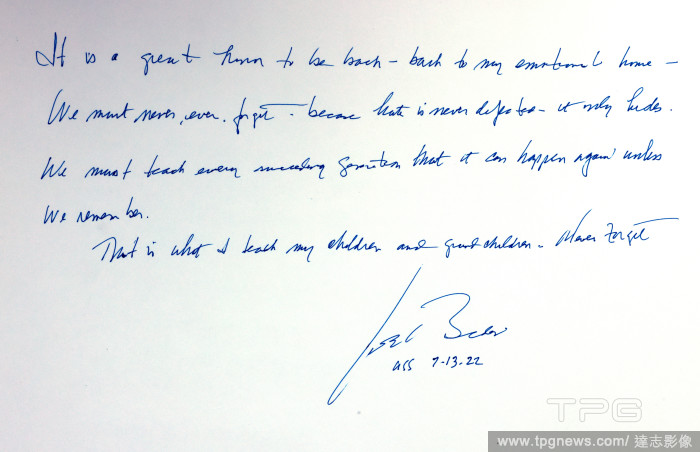 It is a great honor to be back - back to my emotional home -
We must never, ever, forget - because hate is never defeated - it only hides.
We must teach every succeeding generation that it can happen again unless
We remember.
That is what I teach my children and grandchildren - Never Forget
Joe Biden
USS 7-13-22
TPG
www.tpgnews.com/ 達志影像